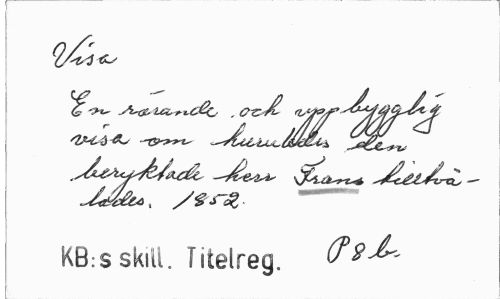 Visa
En rörande och uppbygglig
visa om huruledes den
beryktade herr Frans tilltvå-
lades. 1852.
KB:s skill. Titelreg. P 8 b.